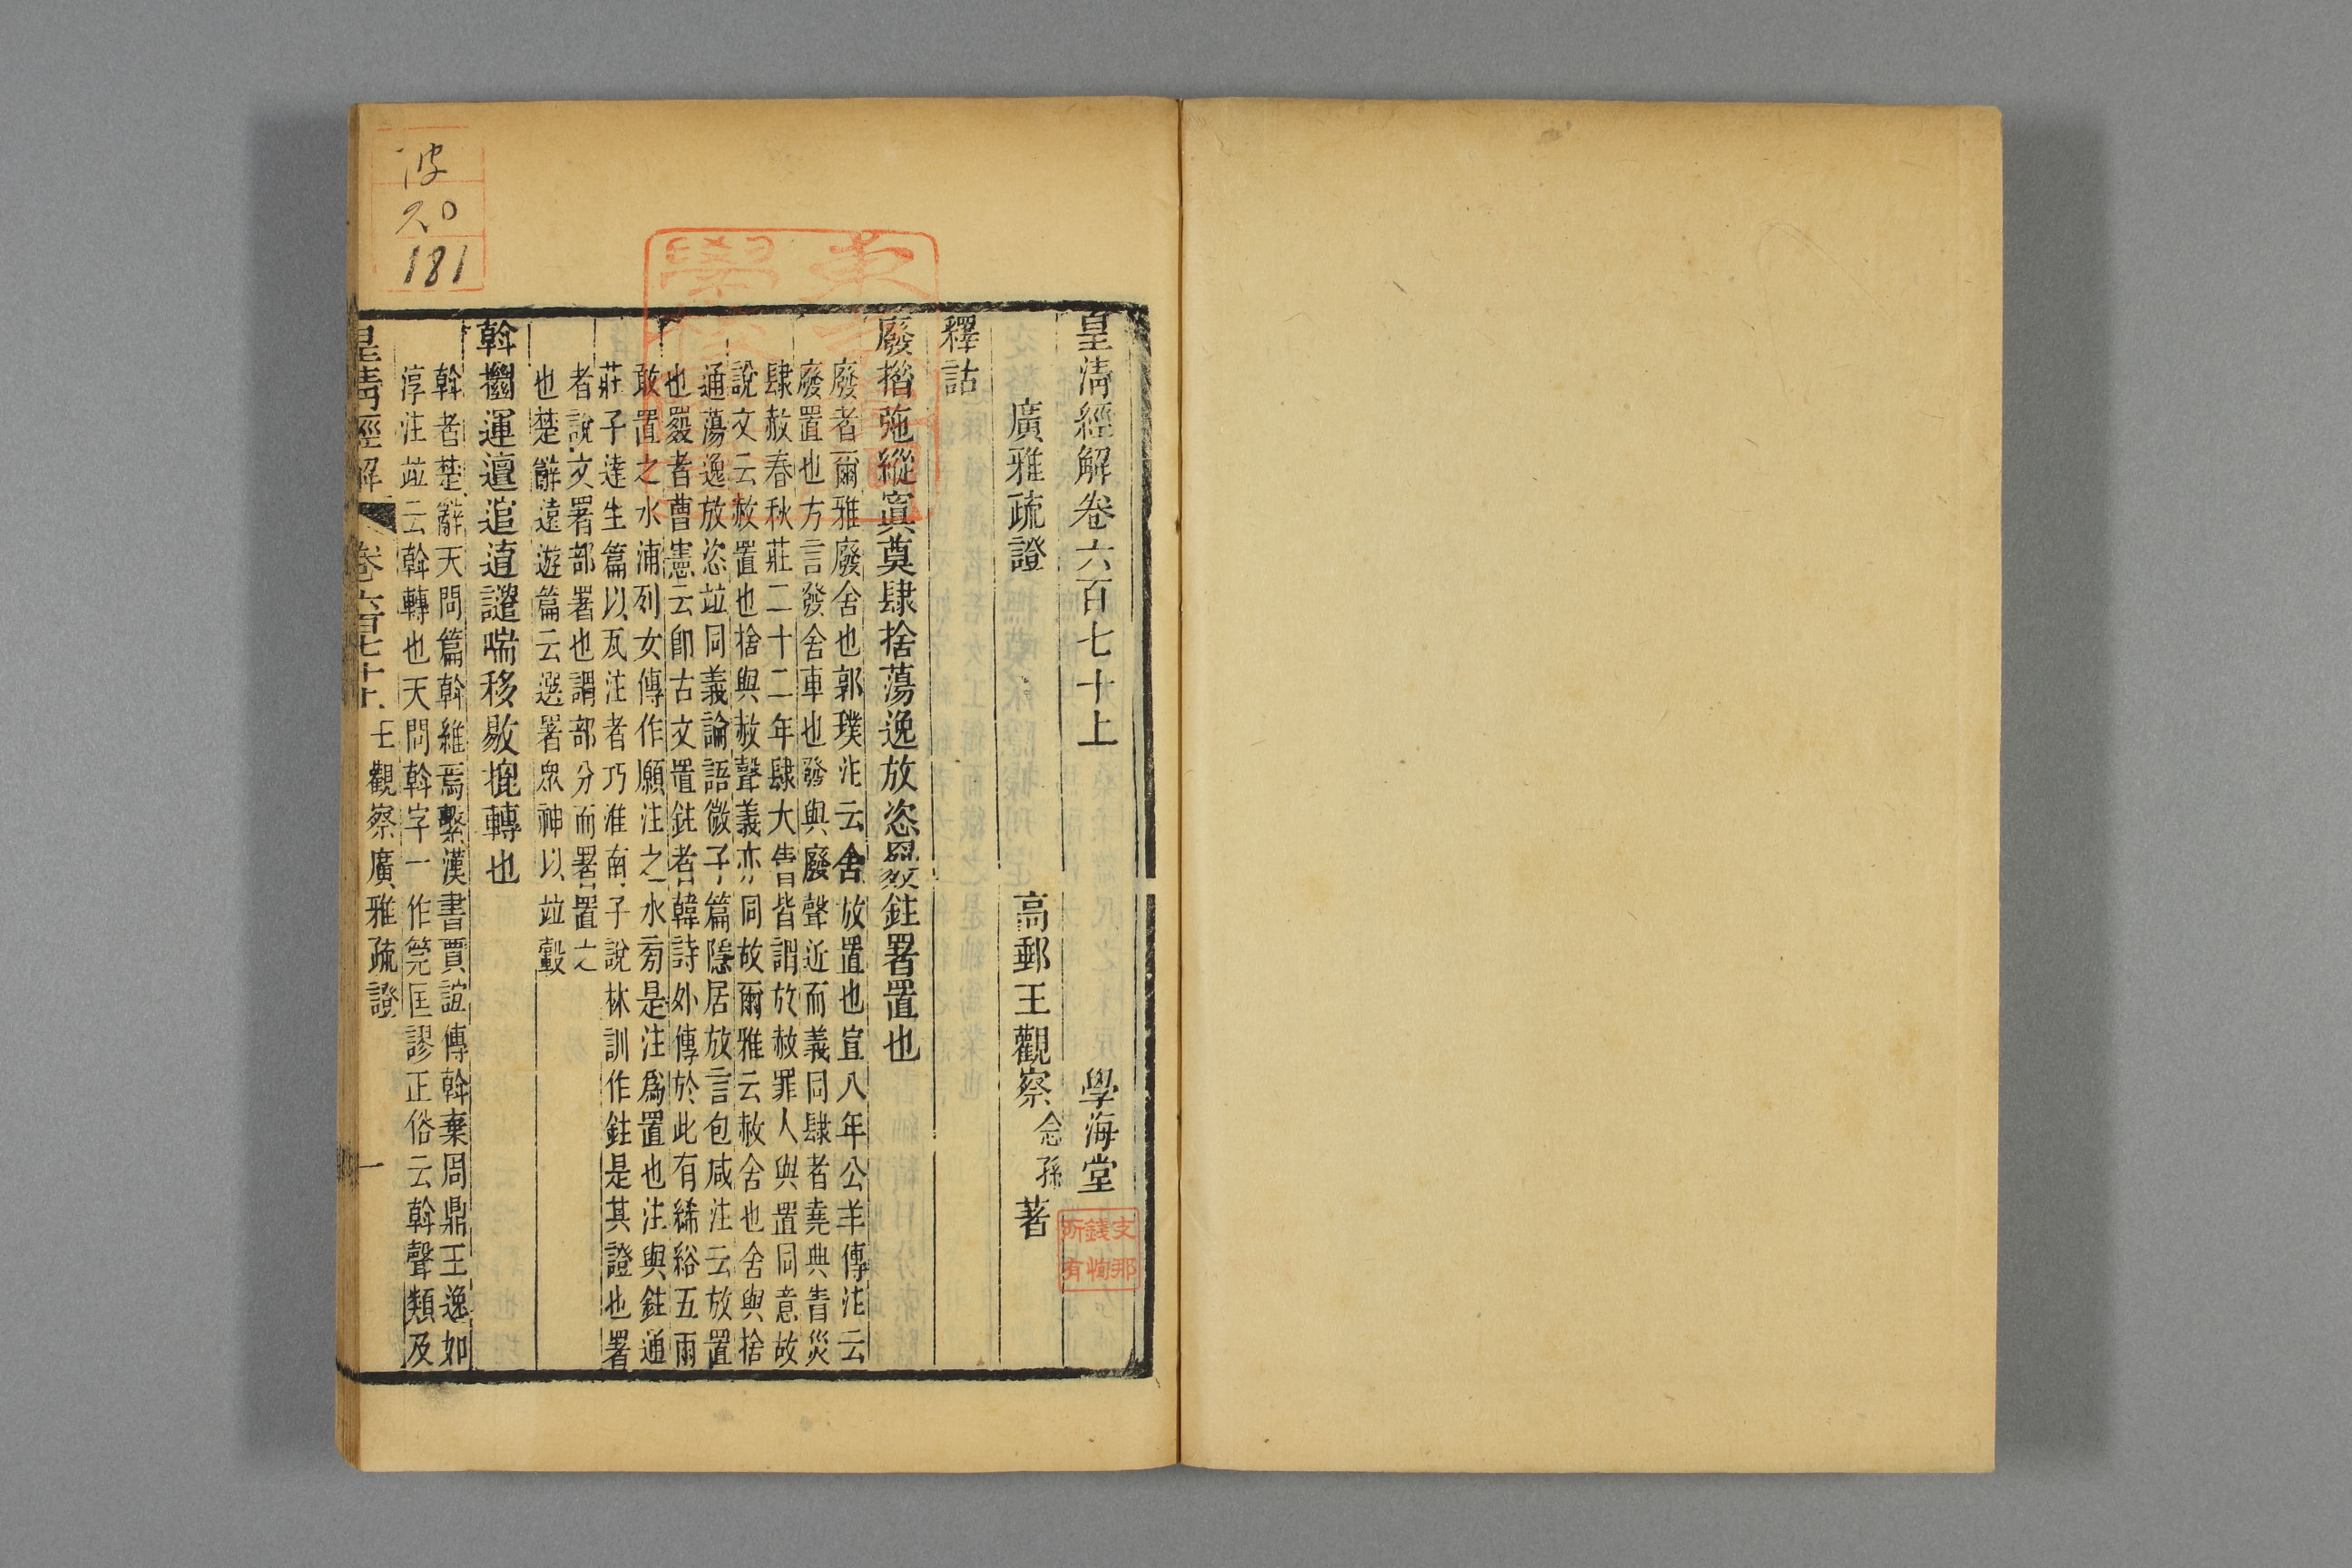 皇清經解卷六百七十上
學海堂
廣雅疏證
高郵王觀察念孫著
釋詁
廢措弛縱寘奠肆捨蕩逸放恣罬鉒署置也
廢者爾雅廢舍也郭璞注云舍放置也宣八年公羊傳注云
廢置也方言發舍車也發與廢聲近而義同肆者堯典眚災
肆赦春秋莊二十二年肆大眚皆謂放赦罪人與置同意故
說文云赦置也捨與赦聲義亦同故爾雅云赦舍也舍與捨
通蕩逸放恣竝同義論語微子篇隱居放言包咸注云放置
也罬者曹憲云卽古文置鉒者韓詩外傳於此有絺綌五兩
敢置之水浦列女傳作願注之水旁是注爲置也注與鉒通
莊子達生篇以瓦注者巧淮南子說林訓作鉒是其證也署
者說文署部署也謂部分而署置之
也楚辭遠遊篇云選署眾神以竝轂
斡運邅逭譴喘移轉也
斡者楚辭天問篇斡維焉繫漢書賈誼傳斡棄周鼎王逸如
淳注竝云斡轉也天問斡字一作筦匡謬正俗云斡聲類及
皇清經解
卷六百七十上
王觀察廣雅疏證
一
20
181
支那
錢恂
所有